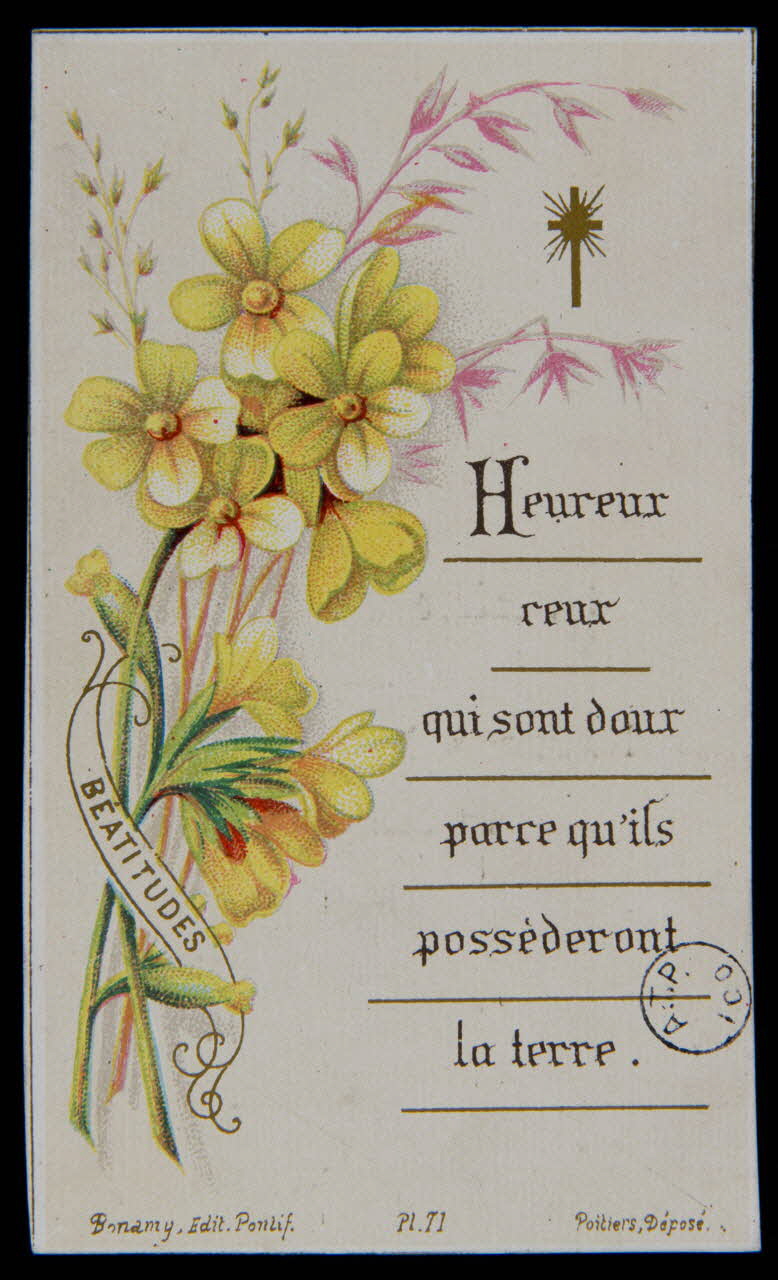 Heureux
ceux
qui sont doux
parce qu'ils
possèderont
la terre.
BÉATITUDES
A.T.P.
ICO
Bonamy, Edit. Pontif.
Pl. 71
Poitiers, Déposé.